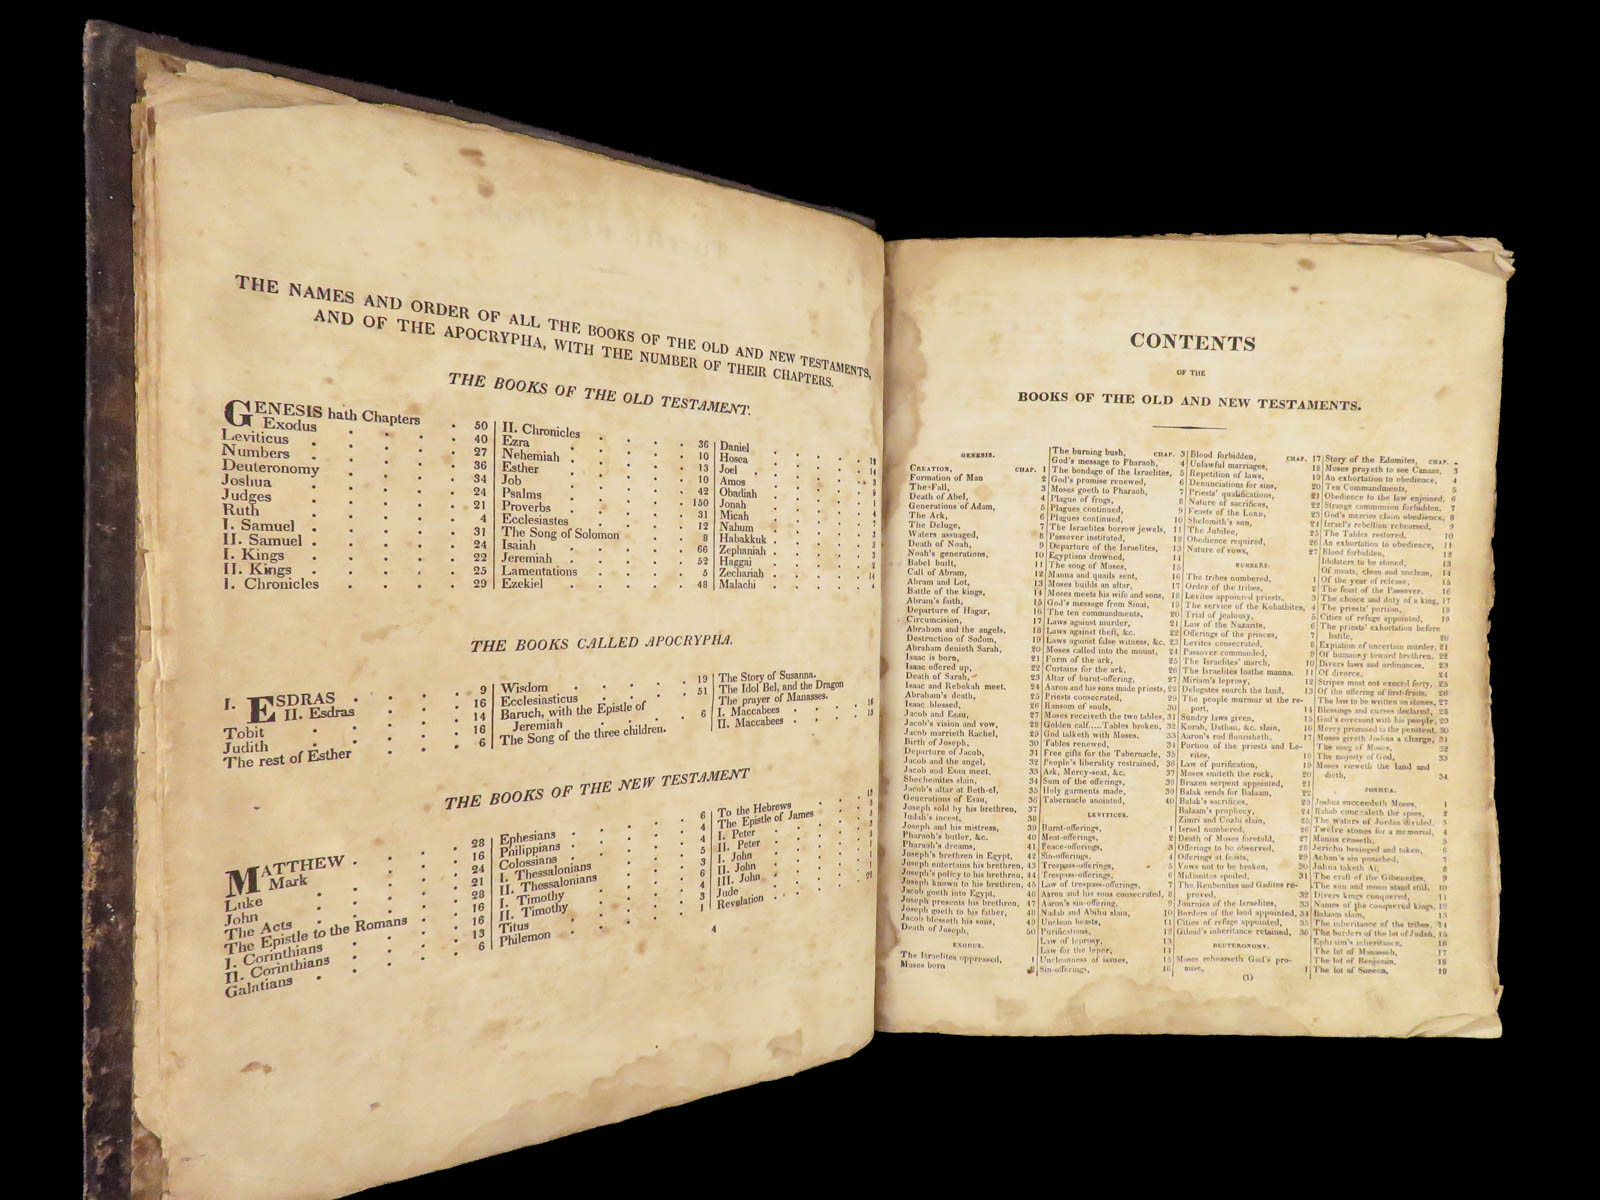 THE NAMES AND ORDER OF ALL THE BOOKS OF THE OLD AND NEW TESTAMENTS,
AND OF THE APOCRYPHA, WITH THE NUMBER OF THEIR CHAPTERS.
THE BOOKS OF THE OLD TESTAMENT.
GENESIS hath Chapters . 50
Exodus . . . . 40
Leviticus . . . . . 27
Numbers . . . . . 36
Deuteronomy . . . . 34
Joshua . . . . . 24
Judges . . . . . 21
Ruth . . . . . 4
I. Samuel . . . . . 31
II. Samuel . . . . . 24
I. Kings . . . . . 22
II. Kings . . . . . 25
I. Chronicles . . . . 29
II. Chronicles . . . . 36
Ezra . . . . . 10
Nehemiah . . . . . 13
Esther . . . . . 10
Job . . . . . 42
Psalms . . . . . 150
Proverbs . . . . . 31
Ecclesiastes . . . . 12
The Song of Solomon . . . 8
Isaiah . . . . . 66
Jeremiah . . . . . 52
Lamentations . . . . 5
Ezekiel . . . . . 48
Daniel . . . . 12
Hosea . . . . 14
Joel . . . . 3
Amos . . . . 9
Obadiah . . . . 1
Jonah . . . . 4
Micah . . . . 7
Nahum . . . . 3
Habakkuk . . . . 3
Zephaniah . . . . 3
Haggai . . . . 2
Zechariah . . . . 14
Malachi . . . . 4
THE BOOKS CALLED APOCRYPHA.
I. ESDRAS . . . . 9
II. Esdras . . . . 16
Tobit . . . . . 14
Judith . . . . . 16
The rest of Esther . . . 6
Wisdom . . . . . 19
Ecclesiasticus . . . . 51
Baruch, with the Epistle of
Jeremiah . . . . . 6
The Song of the three children.
The Story of Susanna.
The Idol Bel, and the Dragon
The prayer of Manasses.
I. Maccabees . . . . 16
II. Maccabees . . . . 15
THE BOOKS OF THE NEW TESTAMENT
MATTHEW . . . . 28
Mark . . . . 16
Luke . . . . . 24
John . . . . . 21
The Acts . . . . . 28
The Epistle to the Romans . . 16
I. Corinthians . . . . 16
II. Corinthians . . . . 13
Galatians . . . . . 6
Ephesians . . . . . 6
Philippians . . . . . 4
Colossians . . . . . 4
I. Thessalonians . . . . 5
II. Thessalonians . . . . 3
I. Timothy . . . . . 6
II. Timothy . . . . . 4
Titus . . . . . 3
Philemon . . . . . 1
To the Hebrews . . . 13
The Epistle of James . . . 5
I. Peter . . . . 5
II. Peter . . . . 3
I. John . . . . 5
II. John . . . . 1
III. John . . . . 1
Jude . . . . 1
Revelation . . . . 22
4
CONTENTS
OF THE
BOOKS OF THE OLD AND NEW TESTAMENTS.
GENESIS.
CREATION, CHAP. 1
Formation of Man 2
The Fall, 3
Death of Abel, 4
Generations of Adam, 5
The Ark, 6
The Deluge, 7
Waters assuaged, 8
Death of Noah, 9
Noah's generations, 10
Babel built, 11
Call of Abram, 12
Abram and Lot, 13
Battle of the kings, 14
Abram's faith, 15
Departure of Hagar, 16
Circumcision, 17
Abraham and the angels, 18
Destruction of Sodom, 19
Abraham denieth Sarah, 20
Isaac is born, 21
Isaac offered up, 22
Death of Sarah, 23
Isaac and Rebekah meet. 24
Abraham's death, 25
Isaac blessed, 26
Jacob and Esau, 27
Jacob's vision and vow, 28
Jacob marrieth Rachel, 29
Birth of Joseph, 30
Departure of Jacob, 31
Jacob and the angel, 32
Jacob and Esau meet, 33
Shechemites slain, 34
Jacob's altar at Beth-el, 35
Generations of Esau, 36
Joseph sold by his brethren, 37
Judah's incest, 38
Joseph and his mistress, 39
Pharaoh's butler, &c. 40
Pharaoh's dreams, 41
Joseph's brethren in Egypt, 42
Joseph entertains his brethren, 43
Joseph's policy to his brethren, 44
Joseph known to his brethren, 45
Jacob goeth into Egypt, 46
Joseph presents his brethren, 47
Joseph goeth to his father, 48
Jacob blesseth his sons, 49
Death of Joseph, 50
EXODUS.
The Israelites oppressed, 1
Moses born 2
The burning bush, CHAP. 3
God's message to Pharaoh, 4
The bondage of the Israelites, 5
God's promise renewed, 6
Moses goeth to Pharaoh, 7
Plague of frogs, 8
Plagues continued, 9
Plagues continued, 10
The Israelites borrow jewels, 11
Passover instituted, 12
Departure of the Israelites, 13
Egyptians drowned, 14
The song of Moses, 15
Manna and quails sent, 16
Moses builds an altar, 17
Moses meets his wife and sons, 18
God's message from Sinai, 19
The ten commandments, 20
Laws against murder, 21
Laws against theft, &c. 22
Laws against false witness, &c. 23
Moses called into the mount, 24
Form of the ark, 25
Curtains for the ark, 26
Altar of burnt-offering, 27
Aaron and his sons made priests, 28
Priests consecrated, 29
Ransom of souls, 30
Moses receiveth the two tables, 31
Golden calf.....Tables broken, 32
God talketh with Moses. 33
Tables renewed, 34
Free gifts for the Tabernacle, 35
People's liberality restrained, 36
Ark, Mercy-seat, &c. 37
Sum of the offerings, 38
Holy garments made, 39
Tabernacle anointed, 40
LEVITICUS.
Burnt-offerings, 1
Meat-offerings, 2
Peace-offerings, 3
Sin-offerings, 4
Trespass-offerings, 5
Trespass-offerings, 6
Law of trespass-offerings, 7
Aaron and his sons consecrated, 8
Aaron's sin-offering, 9
Nadab and Abihu slain, 10
Unclean beasts, 11
Purifications, 12
Law of leprosy, 13
Law for the leper, 14
Uncleanness of issues, 15
Sin-offerings, 16
Blood forbidden, CHAP. 17
Unlawful marriages, 18
Repetition of laws, 19
Denunciations for sins, 20
Priests' qualifications, 21
Nature of sacrifices, 22
Feasts of the LORD, 23
Shelomith's son, 24
The Jubilee, 25
Obedience required, 26
Nature of vows, 27
NUMBERS.
The tribes numbered, 1
Order of the tribes, 2
Levites appointed priests, 3
The service of the Kohathites, 4
Trial of jealousy, 5
Law of the Nazarite, 6
Offerings of the princes, 7
Levites consecrated, 8
Passover commanded, 9
The Israelites' march, 10
The Israelites loathe manna. 11
Miriam's leprosy, 12
Delegates search the land, 13
The people murmur at the re-
port, 14
Sundry laws given, 15
Korah, Dathan, &c. slain, 16
Aaron's rod flourisheth, 17
Portion of the priests and Le-
vites, 18
Law of purification, 19
Moses smiteth the rock, 20
Brazen serpent appointed, 21
Balak sends for Balaam, 22
Balak's sacrifices, 23
Balaam's prophecy, 24
Zimri and Cozbi slain, 25
Israel numbered, 26
Death of Moses foretold, 27
Offerings to be observed, 28
Offerings at feasts, 29
Vows not to be broken, 30
Midianites spoiled, 31
The Reubenites and Gadites re-
proved, 32
Journies of the Israelites, 33
Borders of the land appointed, 34
Cities of refuge appointed, 35
Gilead's inheritance retained, 36
DEUTERONOMY.
Moses rehearseth God's pro-
mise, 1
Story of the Edomites, CHAP.
Moses prayeth to see Canaan, 3
An exhortation to obedience, 4
Ten Commandments, 5
Obedience to the law enjoined, 6
Strange communion forbidden, 7
God's mercies claim obedience, 8
Israel's rebellion rehearsed, 9
The Tables restored, 10
An exhortation to obedience, 11
Blood forbidden, 12
Idolaters to be stoned, 13
Of meats, clean and unclean, 14
Of the year of release, 15
The feast of the Passover, 16
The choice and duty of a king, 17
The priests' portion, 18
Cities of refuge appointed, 19
The priests' exhortation before
battle, 20
Expiation of uncertain murder, 21
Of humanity toward brethren, 22
Divers laws and ordinances, 23
Of divorce, 24
Stripes must not exceed forty, 25
Of the offering of first-fruits, 26
The law to be written on stones, 27
Blessings and curses declared, 28
God's covenant with his people, 29
Mercy promised to the penitent, 30
Moses giveth Joshua a charge, 31
The song of Moses, 32
The majesty of God, 33
Moses vieweth the land and
dieth, 34
JOSHUA.
Joshua succeedeth Moses, 1
Rahab concealeth the spies, 2
The waters of Jordan divided, 3
Twelve stones for a memorial, 4
Manna ceaseth, 5
Jericho besieged and taken, 6
Achan's sin punished, 7
Joshua taketh Ai, 8
The craft of the Gibeonites, 9
The sun and moon stand still, 10
Divers kings conquered, 11
Names of the conquered kings, 12
Balaam slain, 13
The inheritance of the tribes, 14
The borders of the lot of Judah, 15
Ephraim's inheritance, 16
The lot of Manasseh, 17
The lot of Benjamin, 18
The lot of Simeon, 19
(1)